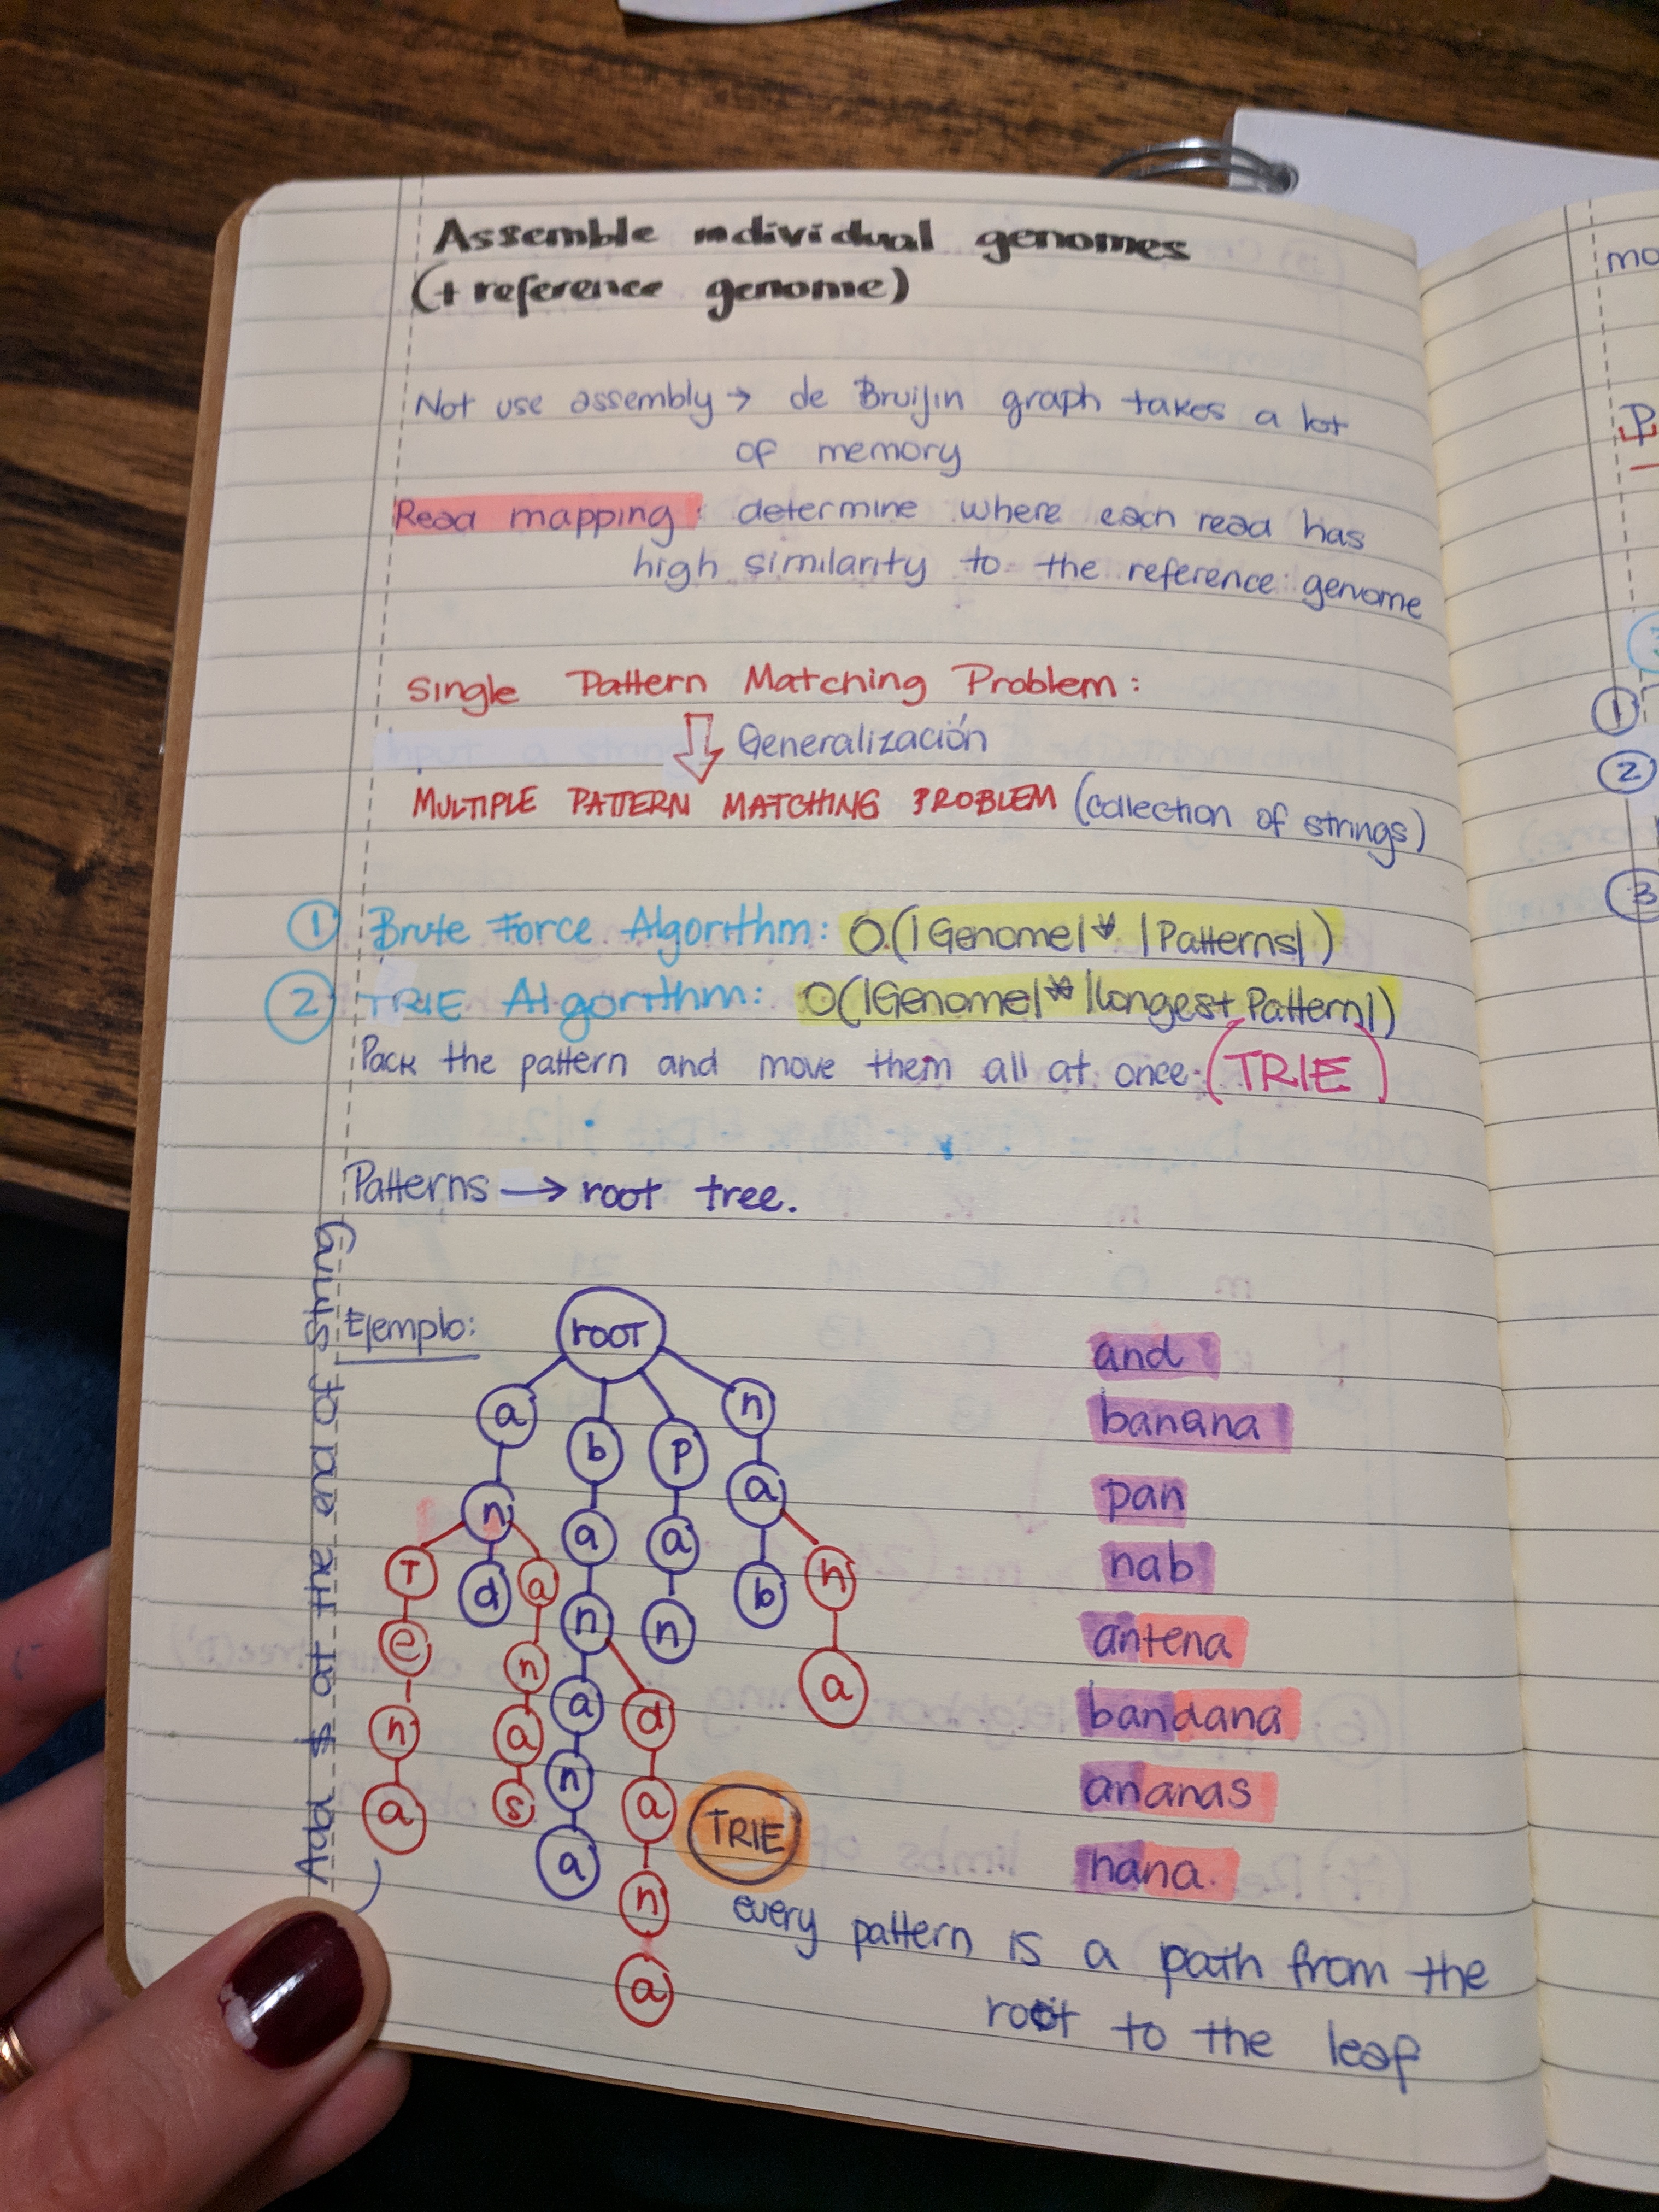 Assemble individual genomes
(+ reference genome)
Not use assembly → de Bruijin graph takes a lot
of memory
Read mapping: determine where each read has
high similarity to the reference genome
Single Pattern Matching Problem:
Generalización
MULTIPLE PATTERN MATCHING PROBLEM (collection of strings)
① Brute Force Algorithm: O(|Genome| * |Patterns|)
② TRIE Algorithm: O(|Genome| * |Longest Pattern|)
Pack the pattern and move them all at once (TRIE)
Patterns → root tree.
Add $ at the end of string
Ejemplo:
root
a b p n
n a a a
T d a n n b n
e n a d a
n a n a
a s a n
a
TRIE
and
banana
pan
nab
antena
bandana
ananas
nana.
every pattern is a path from the
root to the leaf
mo
P
3
①
②
③